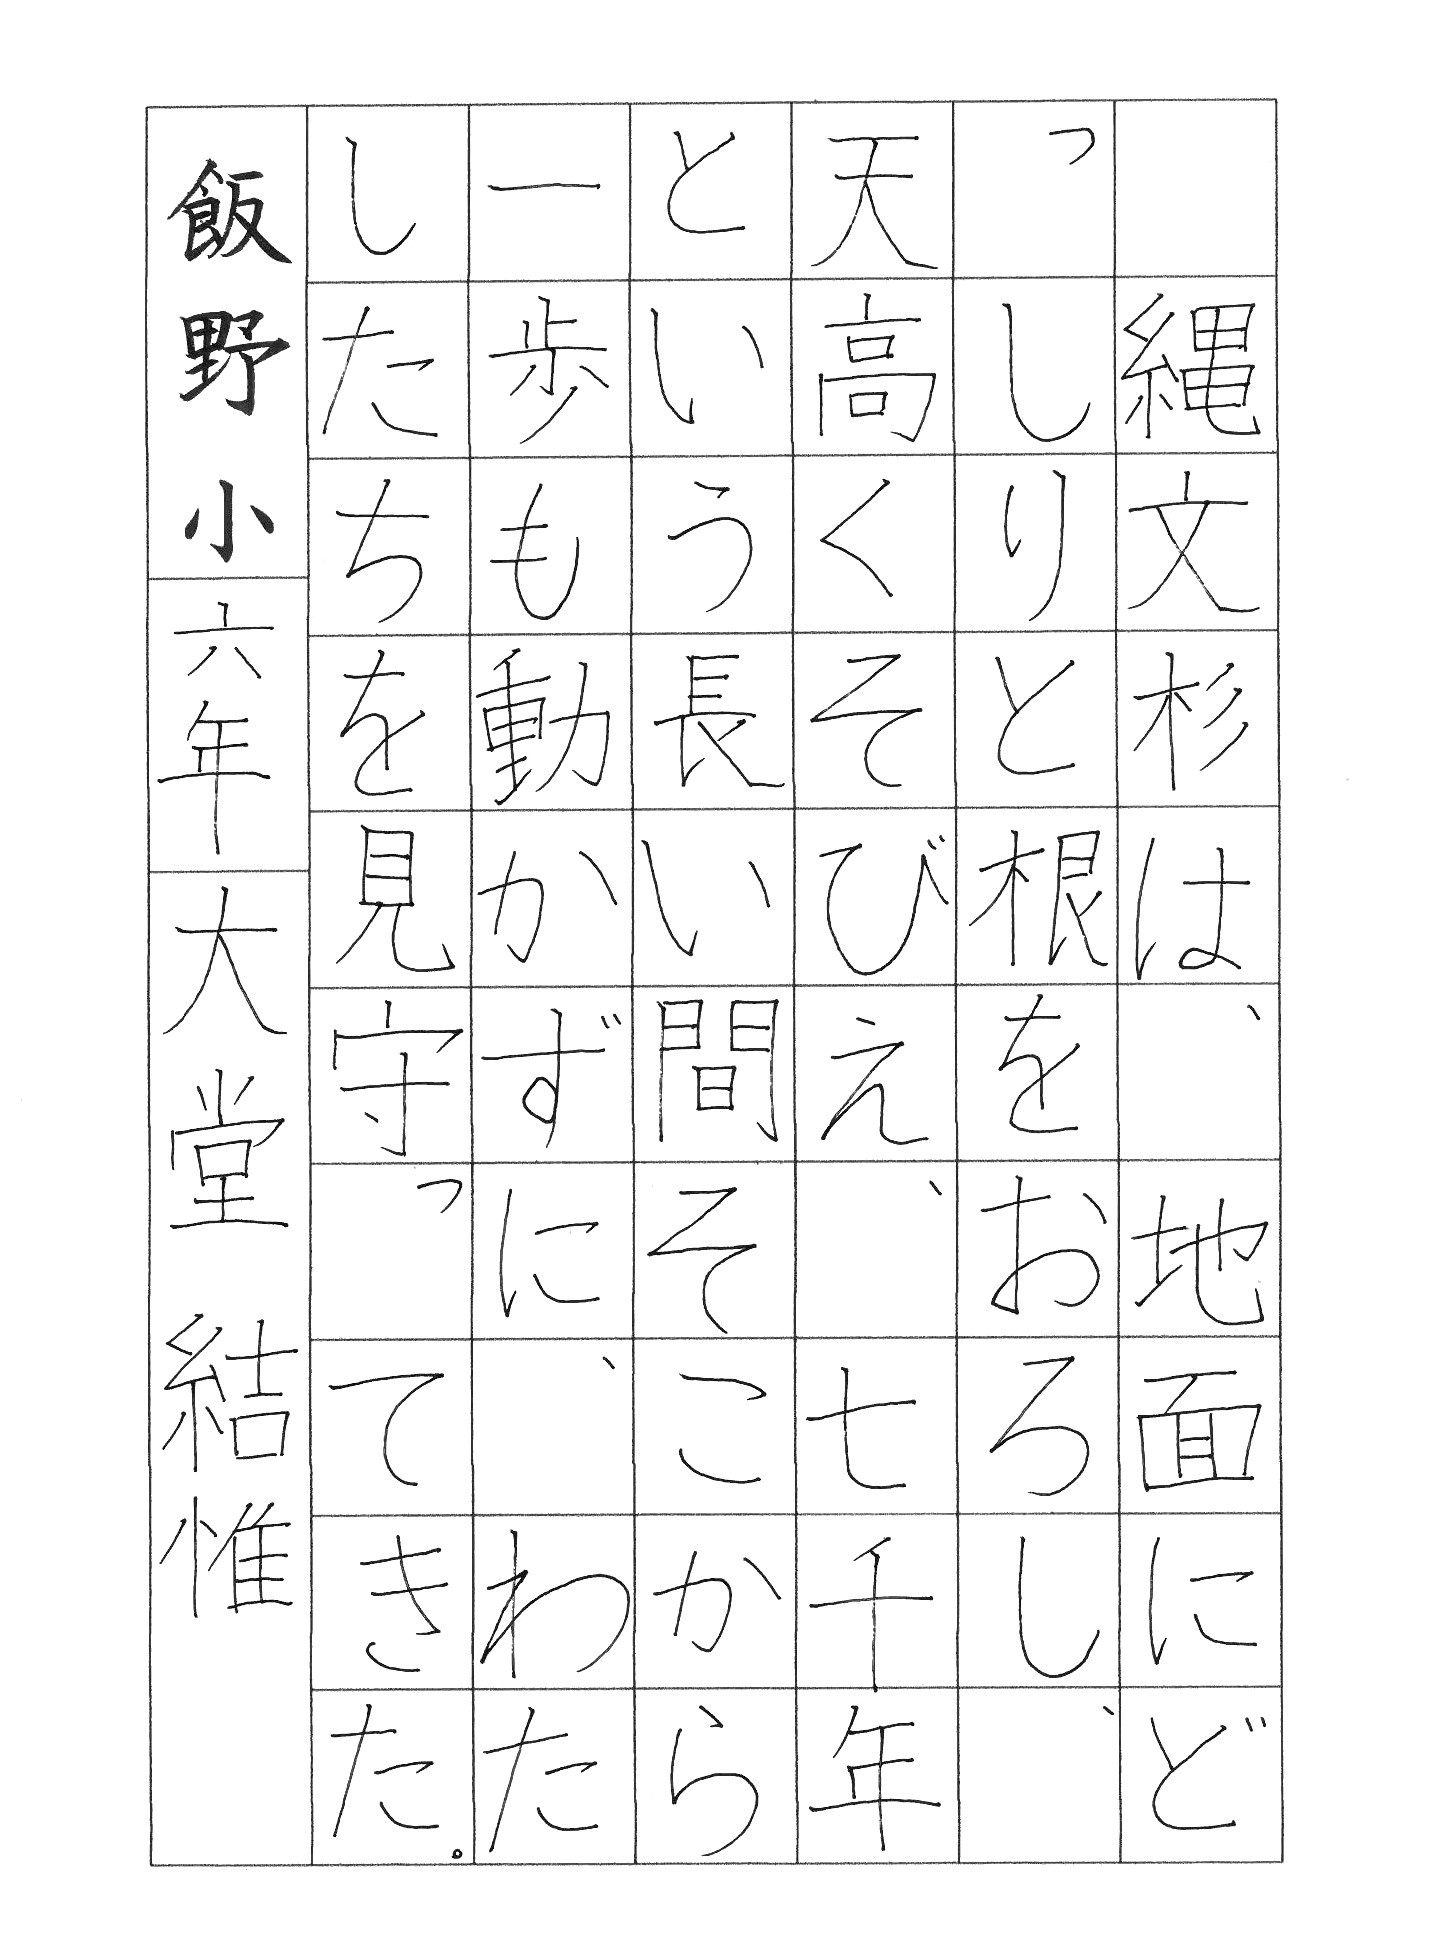 縄文杉は、地面にど
っしりと根をおろし、
天高くそびえ、七千年
という長い間そこから
一歩も動かずに、わた
したちを見守ってきた。
飯野小六年大堂結惟